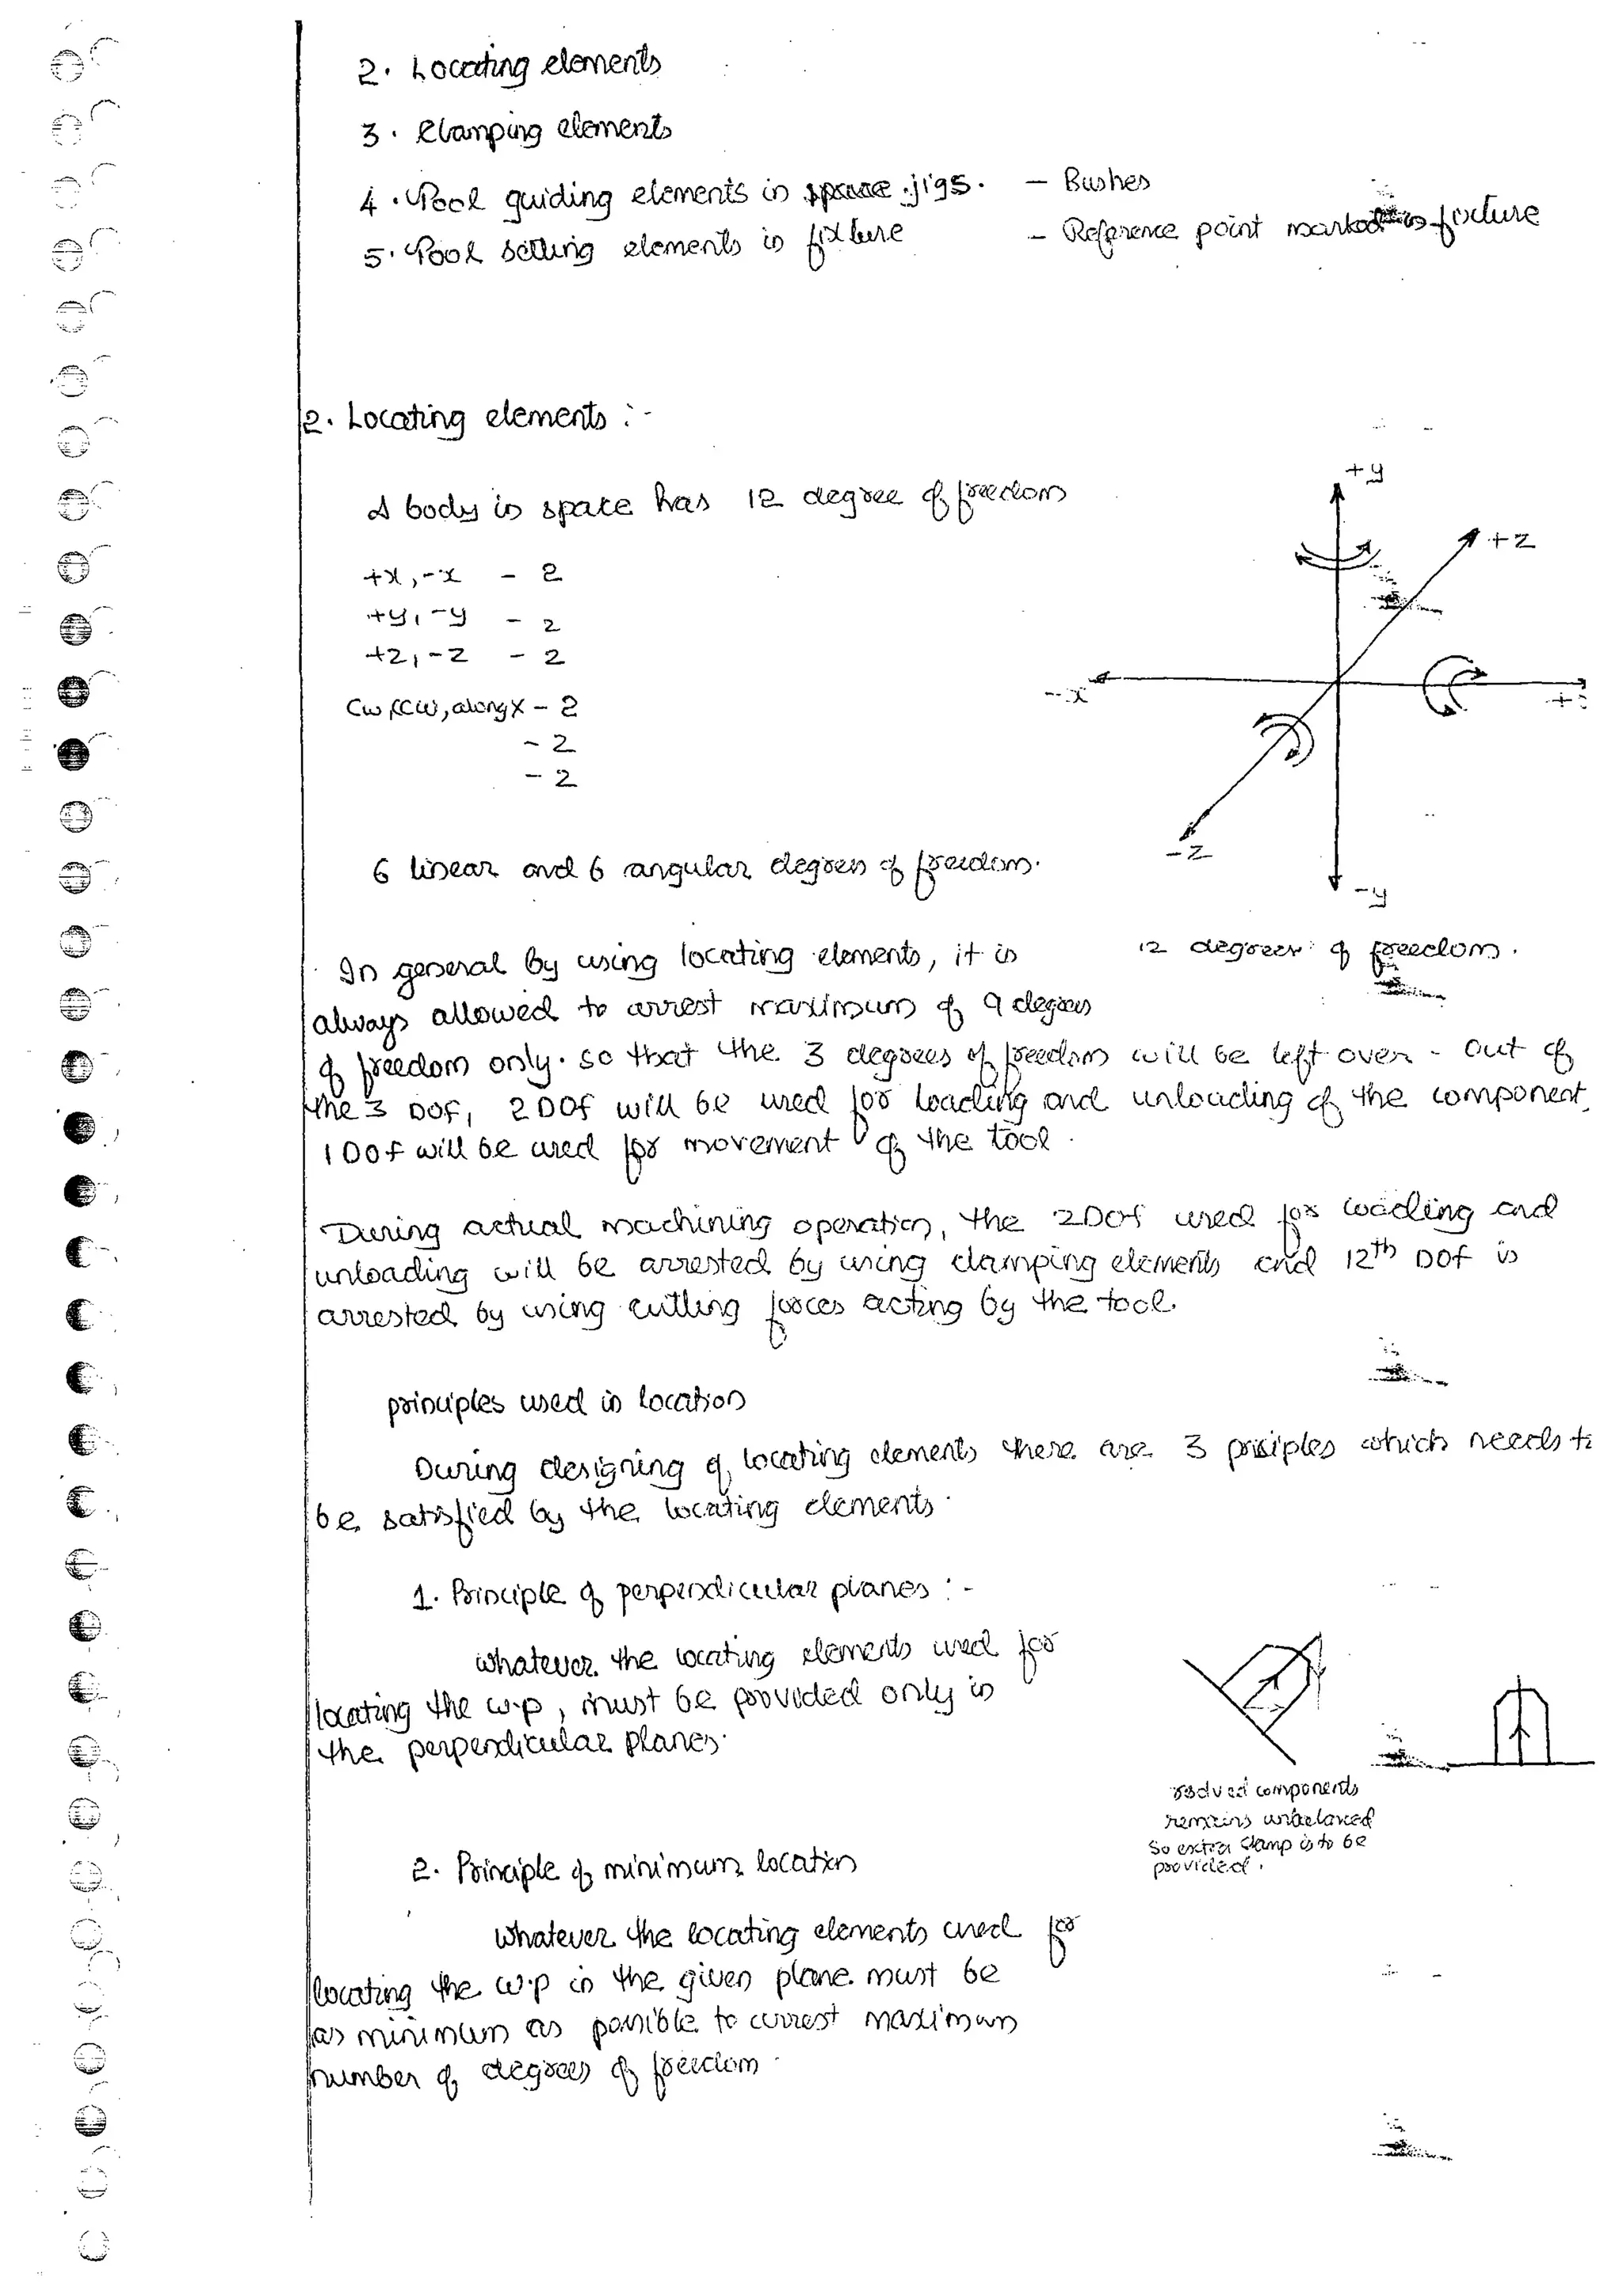 2. Locating elements
3. Clamping elements
4. Tool guiding elements in jigs. - Bushes
5. Tool setting elements in fixture - Reference point marked in fixture
2. Locating elements :-
A body in space has 12 degree of freedom
+x, -x - 2
+y, -y - 2
+z, -z - 2
Cw, CCW, along x - 2
- 2
- 2
+y
+z
-x
+
-z
-y
6 linear and 6 angular degrees of freedom.
12 degrees of freedom.
In general by using locating elements, it is
always allowed to arrest maximum of 9 degrees
of freedom only. so that the 3 degrees of freedom will be left over. Out of
the 3 DOF, 2 DOF will be used for loading and unloading of the component,
1 DOF will be used for movement of the tool.
During actual machining operation, the 2DOF used for loading and
unloading will be arrested by using clamping elements and 12th DOF is
arrested by using cutting forces acting by the tool.
principles used in location
During designing of locating elements there are 3 priciples which needs to
be satisfied by the locating elements.
1. Principle of perpendicular planes :-
whatever the locating elements used for
locating the w.p, must be provided only in
the perpendicular planes.
resolved components
remains unbalanced
So extra clamp is to be
provided.
2. Principle of minimum location
Whatever the locating elements used for
locating the w.p in the given plane must be
as minimum as possible to arrest maximum
number of degrees of freedom.